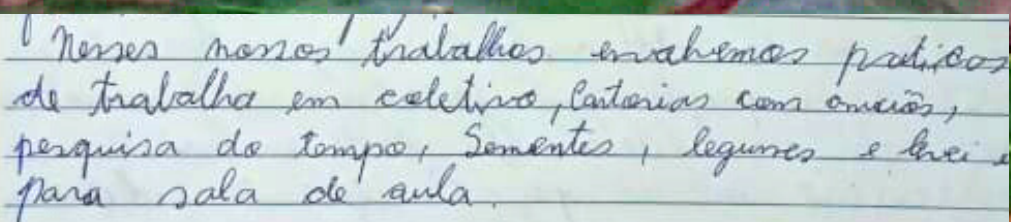 Nesses nossos trabalhos envolvemos praticas
de trabalho em coletivo, Cantorias com anciãos,
pesquisa do tempo, Sementes, legumes e levei
para sala de aula.